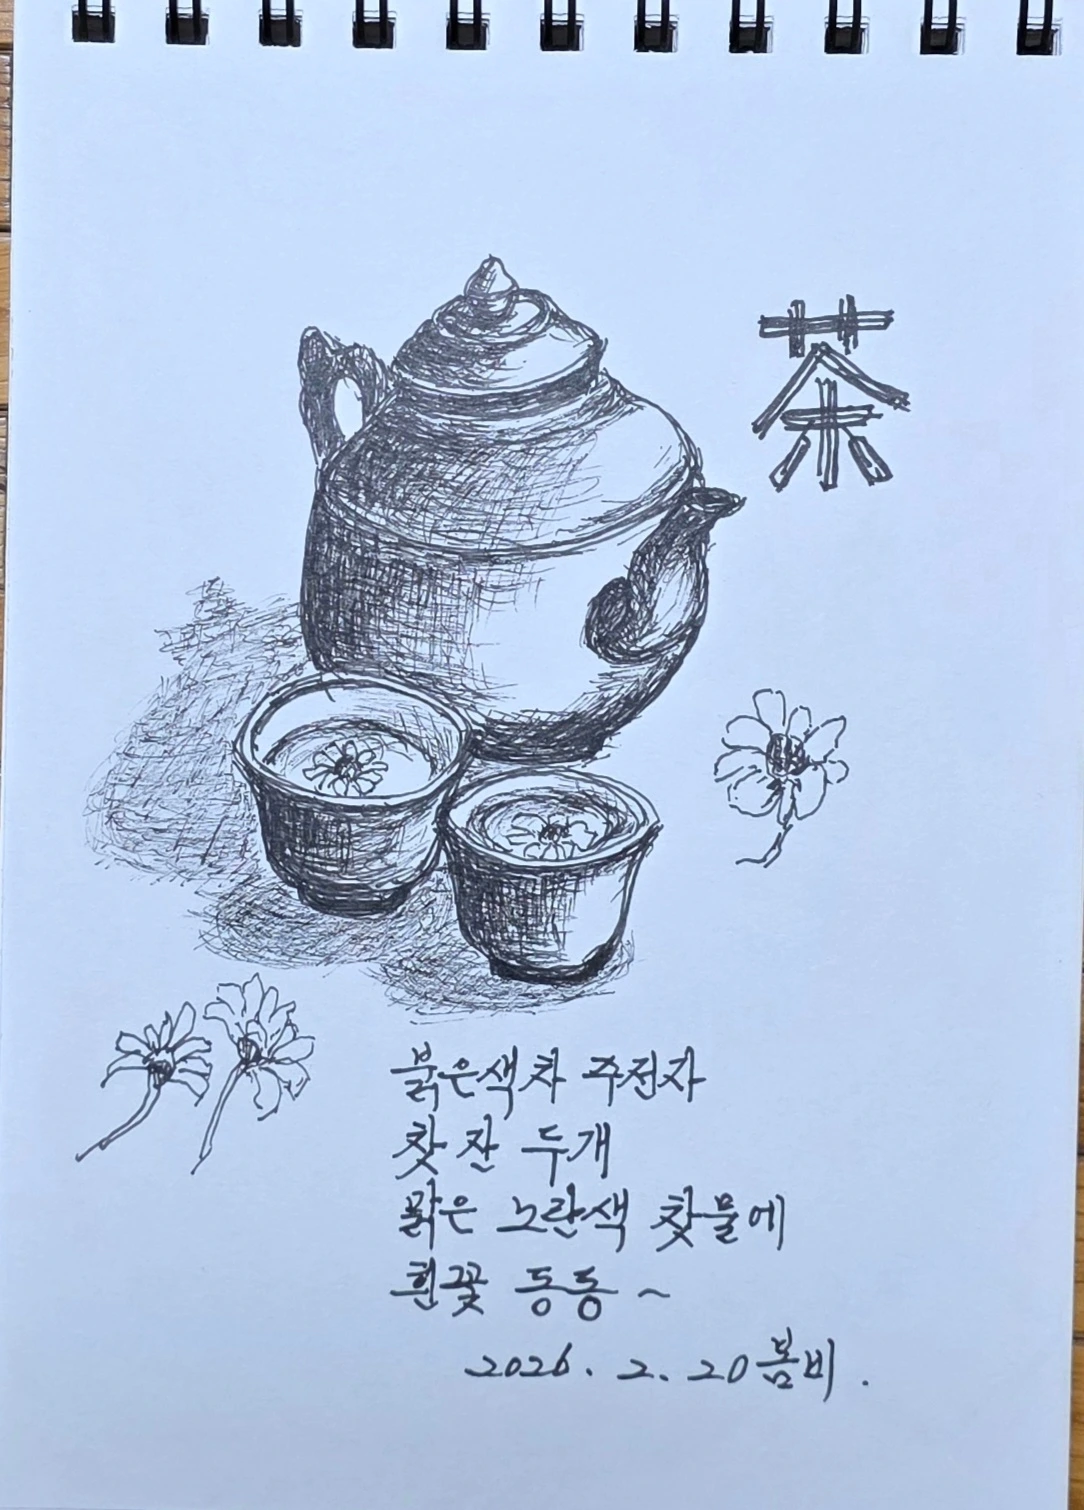 茶
붉은색 차 주전자
찻잔 두개
맑은 노란색 찻물에
흰꽃 동동~
2026. 2. 20 봄비.